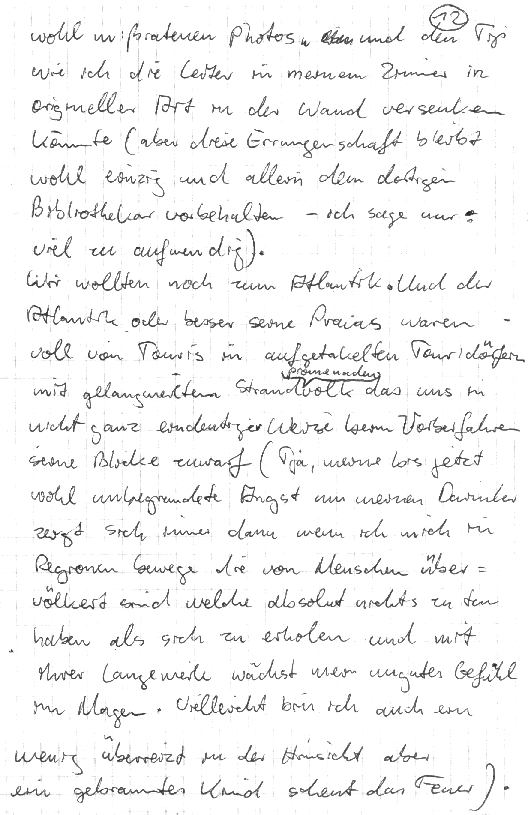 12
wohl mißratenen Photos, und den Tip
wie ich die Leiter in meinem Zimmer in
origineller Art in der Wand versenken
könnte (aber diese Errungenschaft bleibt
wohl einzig und allein dem dortigen
Bibliothekar vorbehalten – ich sage nur:
viel zu aufwendig).
Wir wollten noch zum Atlantik. Und der
Atlantik oder besser seine Praias waren
voll von Touris in aufgetakelten Touridörfern
mit gelangweiltem Strandpromenadenvolk das uns in
nicht ganz eindeutiger Weise beim Vorbeifahren
seine Blicke zuwarf (Tja, meine bis jetzt
wohl unbegründete Angst um meinen
zeigt sich immer dann wenn ich mich in
Regionen bewege die von Menschen über=
völkert sind welche absolut nichts zu tun
haben als sich zu erholen und mit
ihrer Langeweile wächst mein ungutes Gefühl
im Magen. Vielleicht bin ich auch ein
wenig überreizt in der Hinsicht aber
ein gebranntes Kind scheut das Feuer).